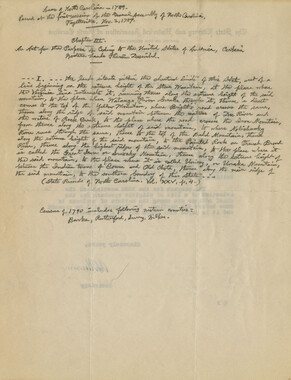 Laws of North Carolina - 1789.
Passed at the First session of the General Assembly of North Carolina,
Fayetteville, Nov. 2, 1789.
Chapter III.
An Act for the Purpose of Ceding to the United States of America, Certain
Western Lands Therein Described.
--- I. --- the lands situate within the chartered limits of this State, west of a
line beginning on the extreme height of the Stone Mountain, at the place where
the Virginia line intersects it, running thence along the extreme height of the said
mountain, to the place where Watauga River breaks through it, thence a direct
course to the top of the Yellow Mountain, where
thence along the ridge of said mountain between the waters of Doe River and
the waters of Rock Creek, to the place where the road crosses the Iron Mountain,
from thence along the extreme height of said mountain, to where
River runs through the same, thence to the top of the Bald Mountain, thence
along the extreme height of the said mountain, to the Painted Rock on French Broad
River, thence along the highest ridge of the said mountain, to the place where it
is called the Great Iron or Smoaky Mountain, thence along the extreme height of
the said mountain, to the place where it is called Unicoy or Unaka Mountain,
between the Indian towns of Cowee and Old Chota, thence along the main ridge of
the said mountain, to the southern boundary of this State, ---
(State Records of North Carolina, Vol. XXV, p. 4.)
Census of 1790 includes following western counties:
Burke, Rutherford, Surry, Wilkes.